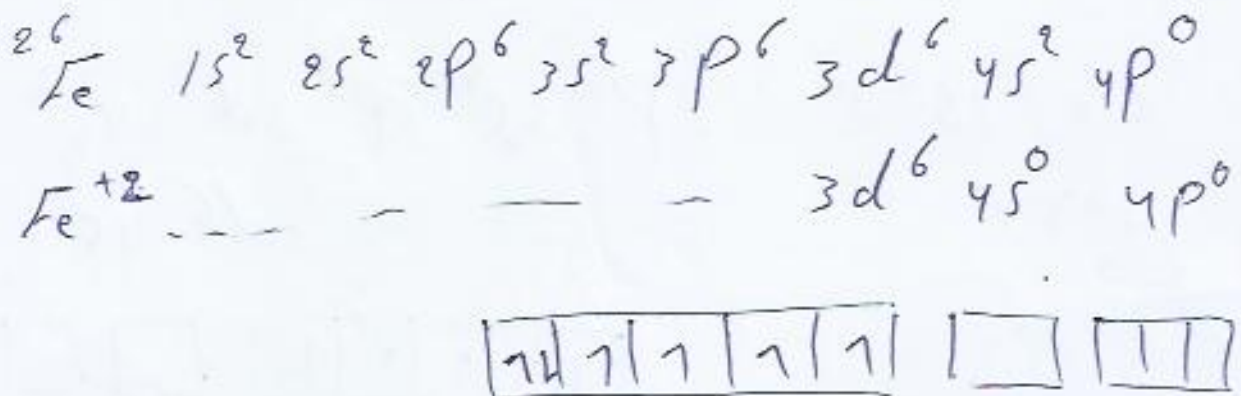 ²⁶Fe 1s² 2s² 2p⁶ 3s² 3p⁶ 3d⁶ 4s² 4p⁰
Fe⁺² ---- - — - 3d⁶ 4s⁰ 4p⁰
|↿⇂|↿|↿|↿|↿| | | | | | |